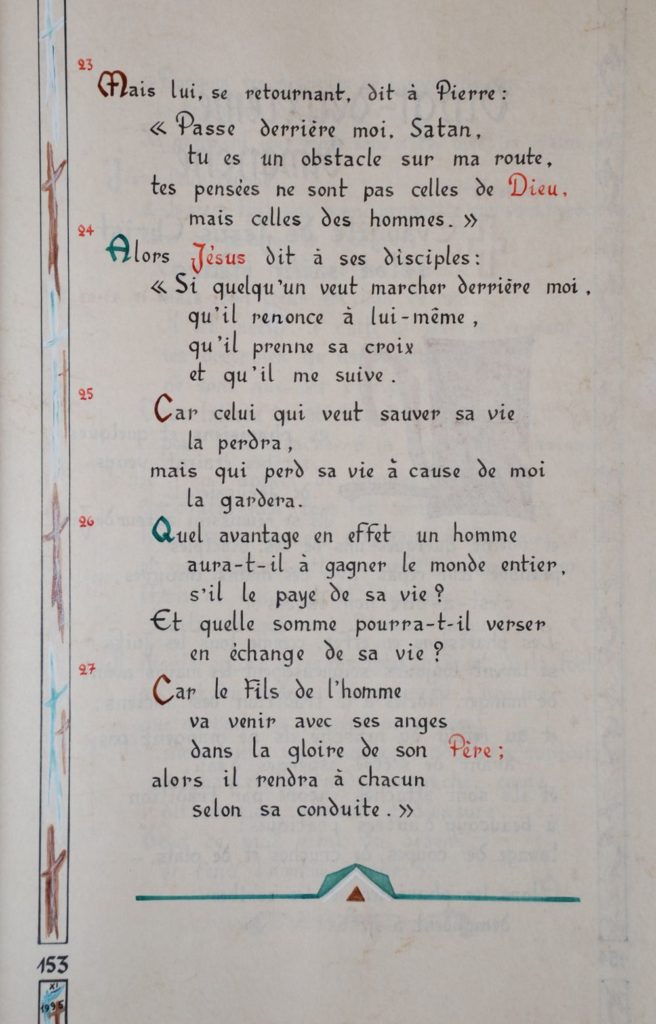 23
Mais lui, se retournant, dit à Pierre :
« Passe derrière moi, Satan,
tu es un obstacle sur ma route,
tes pensées ne sont pas celles de Dieu,
mais celles des hommes. »
24
Alors Jésus dit à ses disciples :
« Si quelqu'un veut marcher derrière moi,
qu'il renonce à lui-même,
qu'il prenne sa croix
et qu'il me suive.
25
Car celui qui veut sauver sa vie
la perdra,
mais qui perd sa vie à cause de moi
la gardera.
26
Quel avantage en effet un homme
aura-t-il à gagner le monde entier,
s'il le paye de sa vie ?
Et quelle somme pourra-t-il verser
en échange de sa vie ?
27
Car le Fils de l'homme
va venir avec ses anges
dans la gloire de son Père ;
alors il rendra à chacun
selon sa conduite. »
153
XI
1996